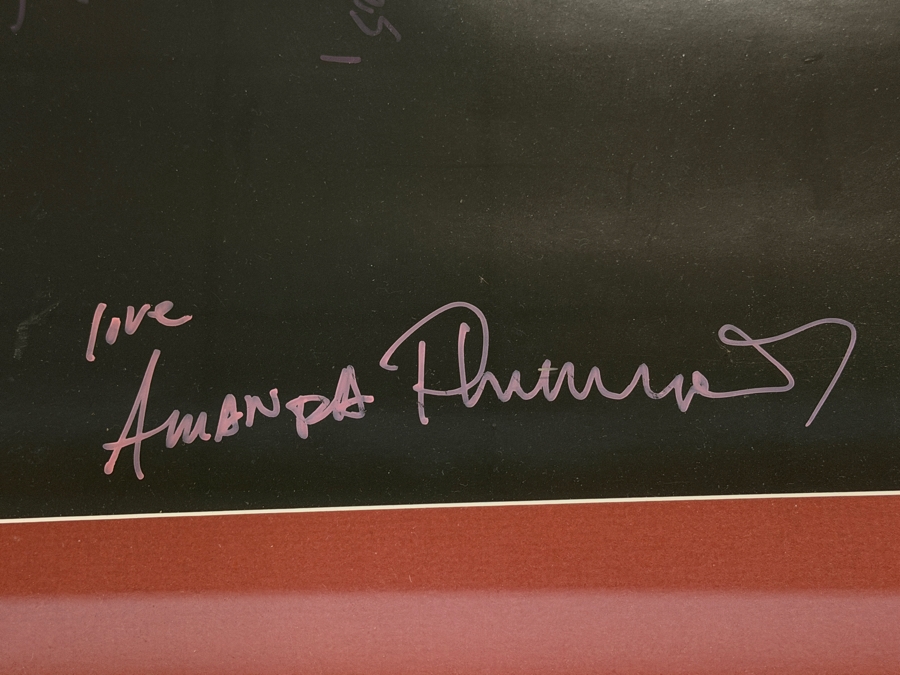 love
AMANDA Plummer